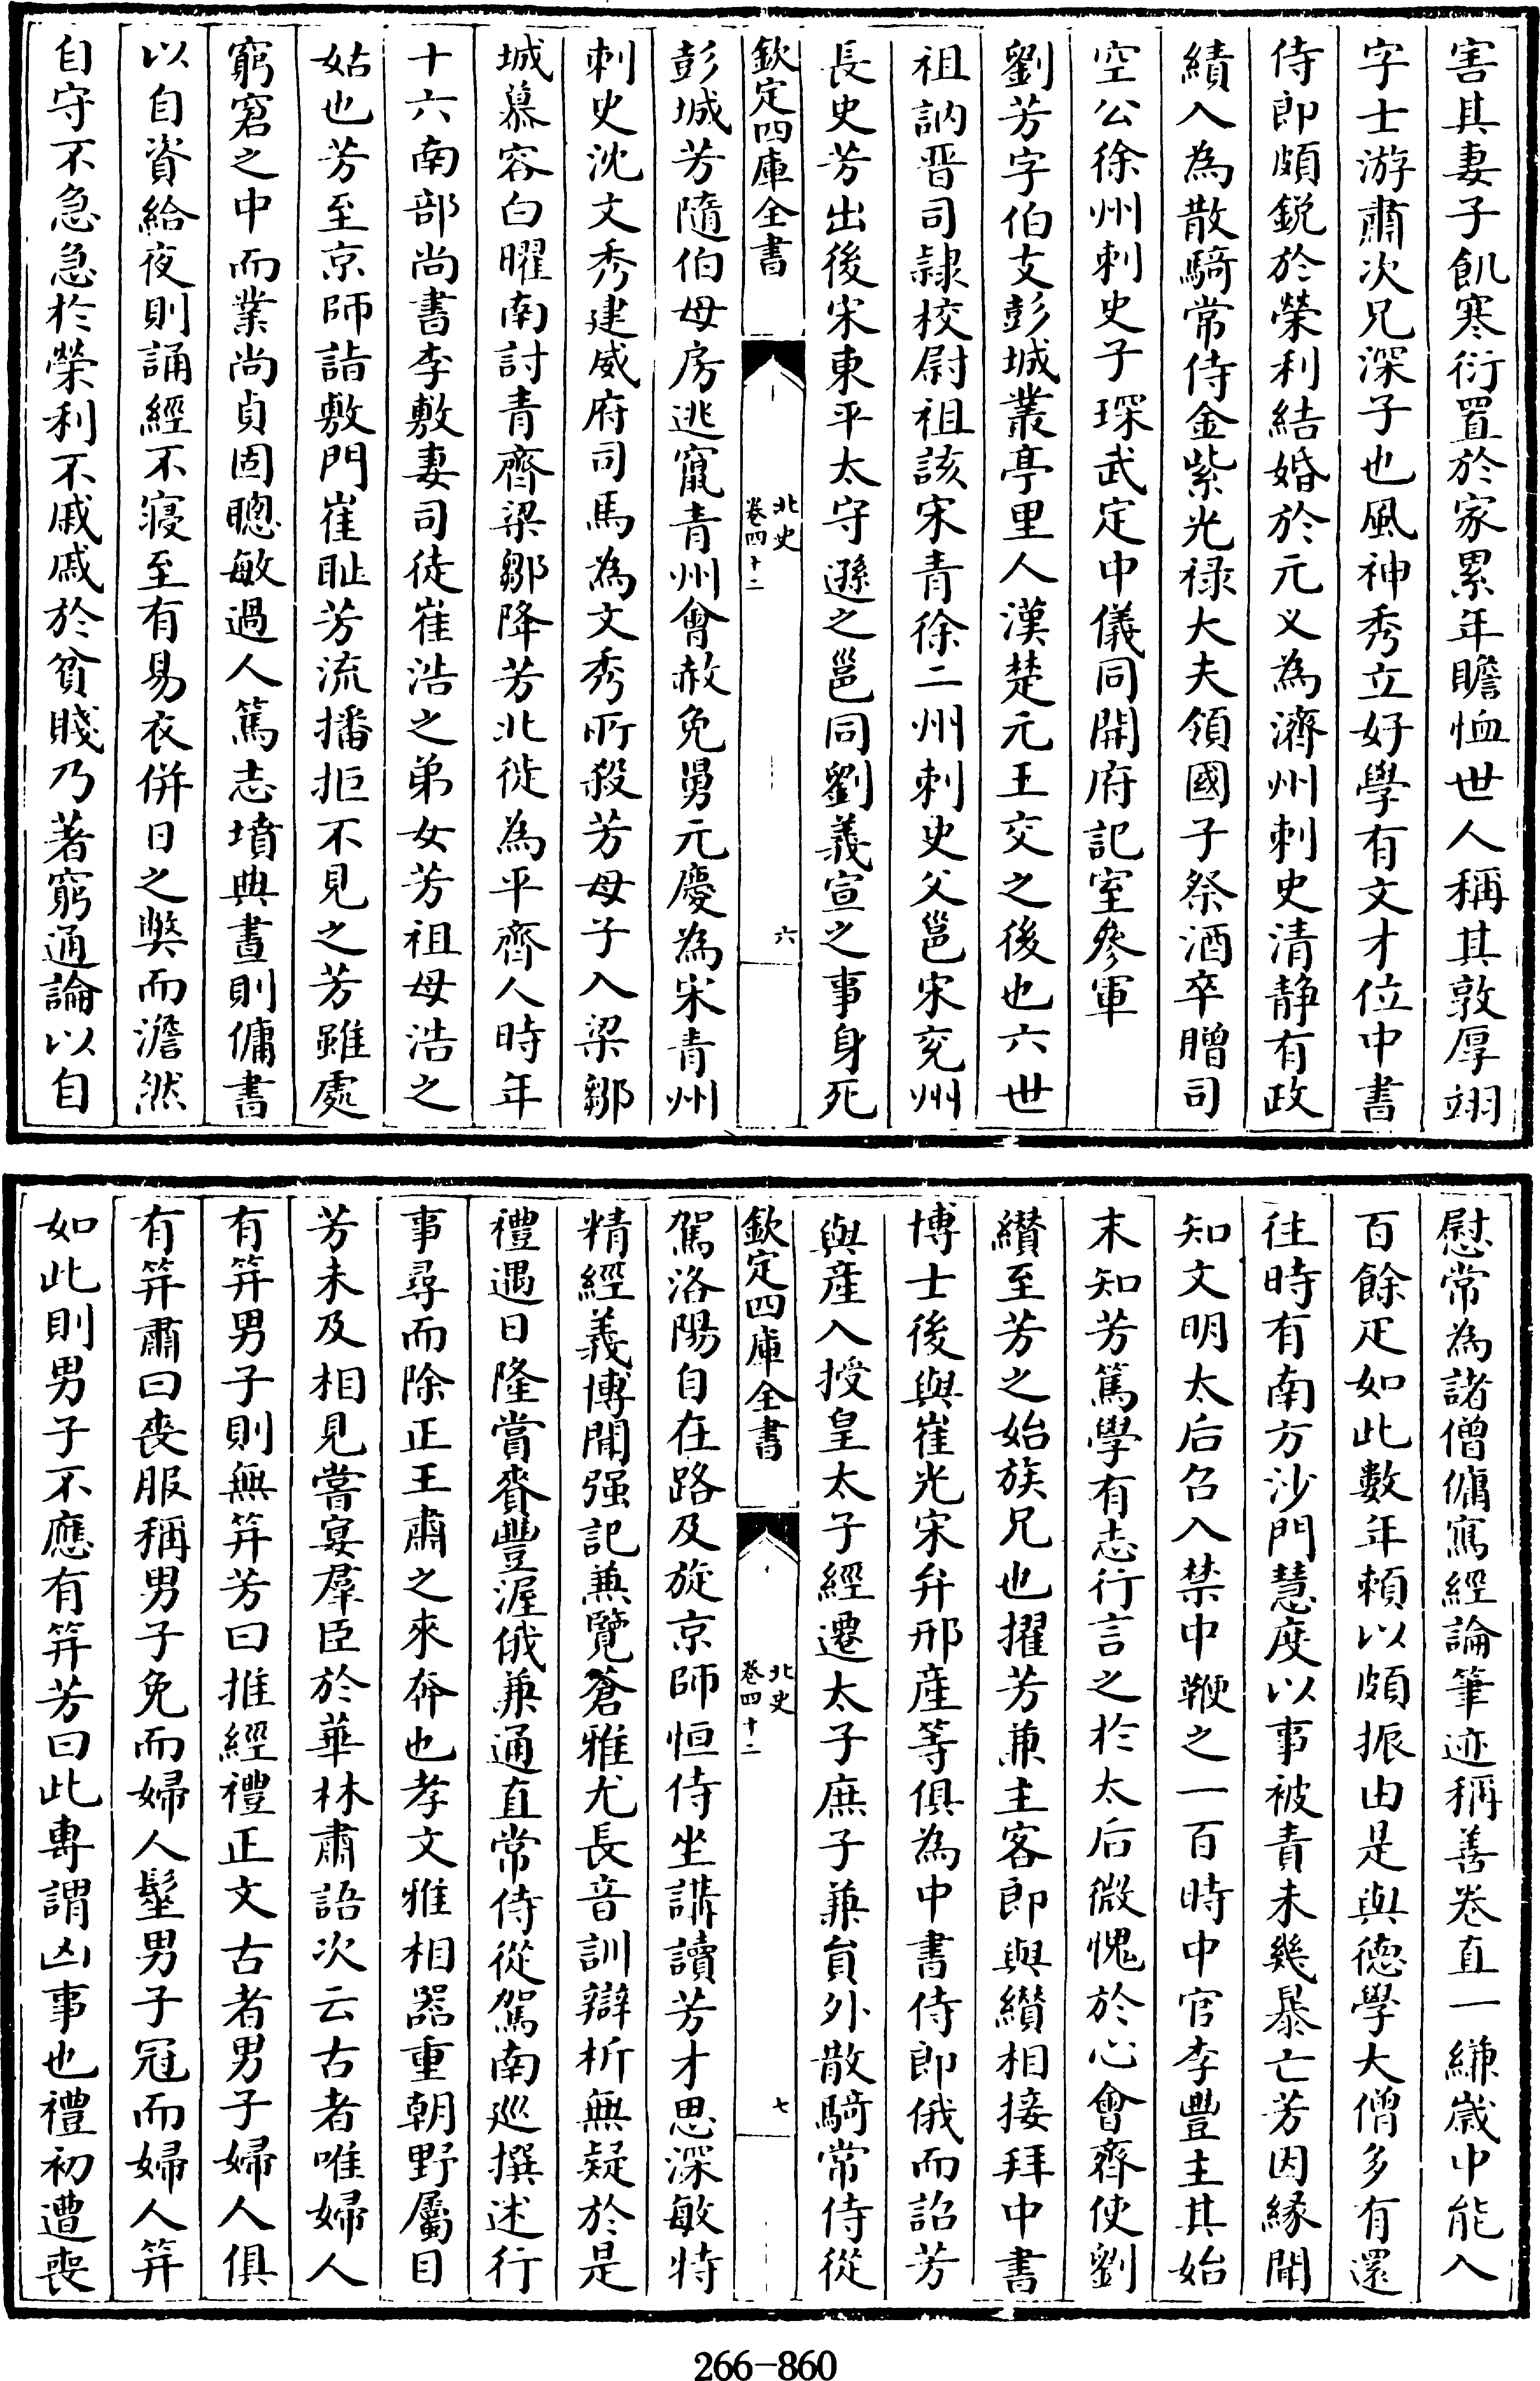 害其妻子飢寒衍置於家累年贍恤世人稱其敦厚翊
字士游肅次兄深子也風神秀立好學有文才位中書
侍郎頗銳於榮利結婚於元乂為濟州刺史清靜有政
績入為散騎常侍金紫光禄大夫領國子祭酒卒贈司
空公徐州刺史子琛武定中儀同開府記室參軍
劉芳字伯支彭城叢亭里人漢楚元王交之後也六世
祖訥晋司隷校尉祖該宋青徐二州刺史父邕宋兖州
長史芳出後宋東平太守遜之邕同劉義宣之事身死
欽定四庫全書
北史
卷四十二
六
彭城芳隨伯母房逃竄青州會赦免舅元慶為宋青州
刺史沈文秀建威府司馬為文秀所殺芳母子入梁鄒
城慕容白曜南討青齊梁鄒降芳北徙為平齊人時年
十六南部尚書李敷妻司徒崔浩之弟女芳祖母浩之
姑也芳至京師詣敷門崔耻芳流播拒不見之芳雖處
窮窘之中而業尚貞固聰敏過人篤志墳典晝則傭書
以自資給夜則誦經不寢至有易衣併日之獘而澹然
自守不急急於榮利不戚戚於貧賤乃著窮通論以自
慰常為諸僧傭寫經論筆迹稱善卷直一縑歲中能入
百餘疋如此數年頼以頗振由是與徳學大僧多有還
往時有南方沙門慧度以事被責未幾暴亡芳因緣聞
知文明太后召入禁中鞭之一百時中官李豐主其始
末知芳篤學有志行言之於太后微愧於心會齊使劉
纘至芳之始族兄也擢芳兼主客郎與纘相接拜中書
博士後與崔光宋弁邢産等俱為中書侍郎俄而詔芳
與産入授皇太子經遷太子庶子兼員外散騎常侍從
欽定四庫全書
北史
卷四十二
七
駕洛陽自在路及旋京師恒侍坐講讀芳才思深敏特
精經義博聞强記兼覽蒼雅尤長音訓辯析無疑於是
禮遇日隆賞賚豐渥俄兼通直常侍從駕南巡撰述行
事尋而除正王肅之來奔也孝文雅相器重朝野屬目
芳未及相見嘗宴羣臣於華林肅語次云古者唯婦人
有笄男子則無笄芳曰推經禮正文古者男子婦人俱
有笄肅曰喪服稱男子免而婦人髽男子冠而婦人笄
如此則男子不應有笄芳曰此專謂凶事也禮初遭喪
266-860